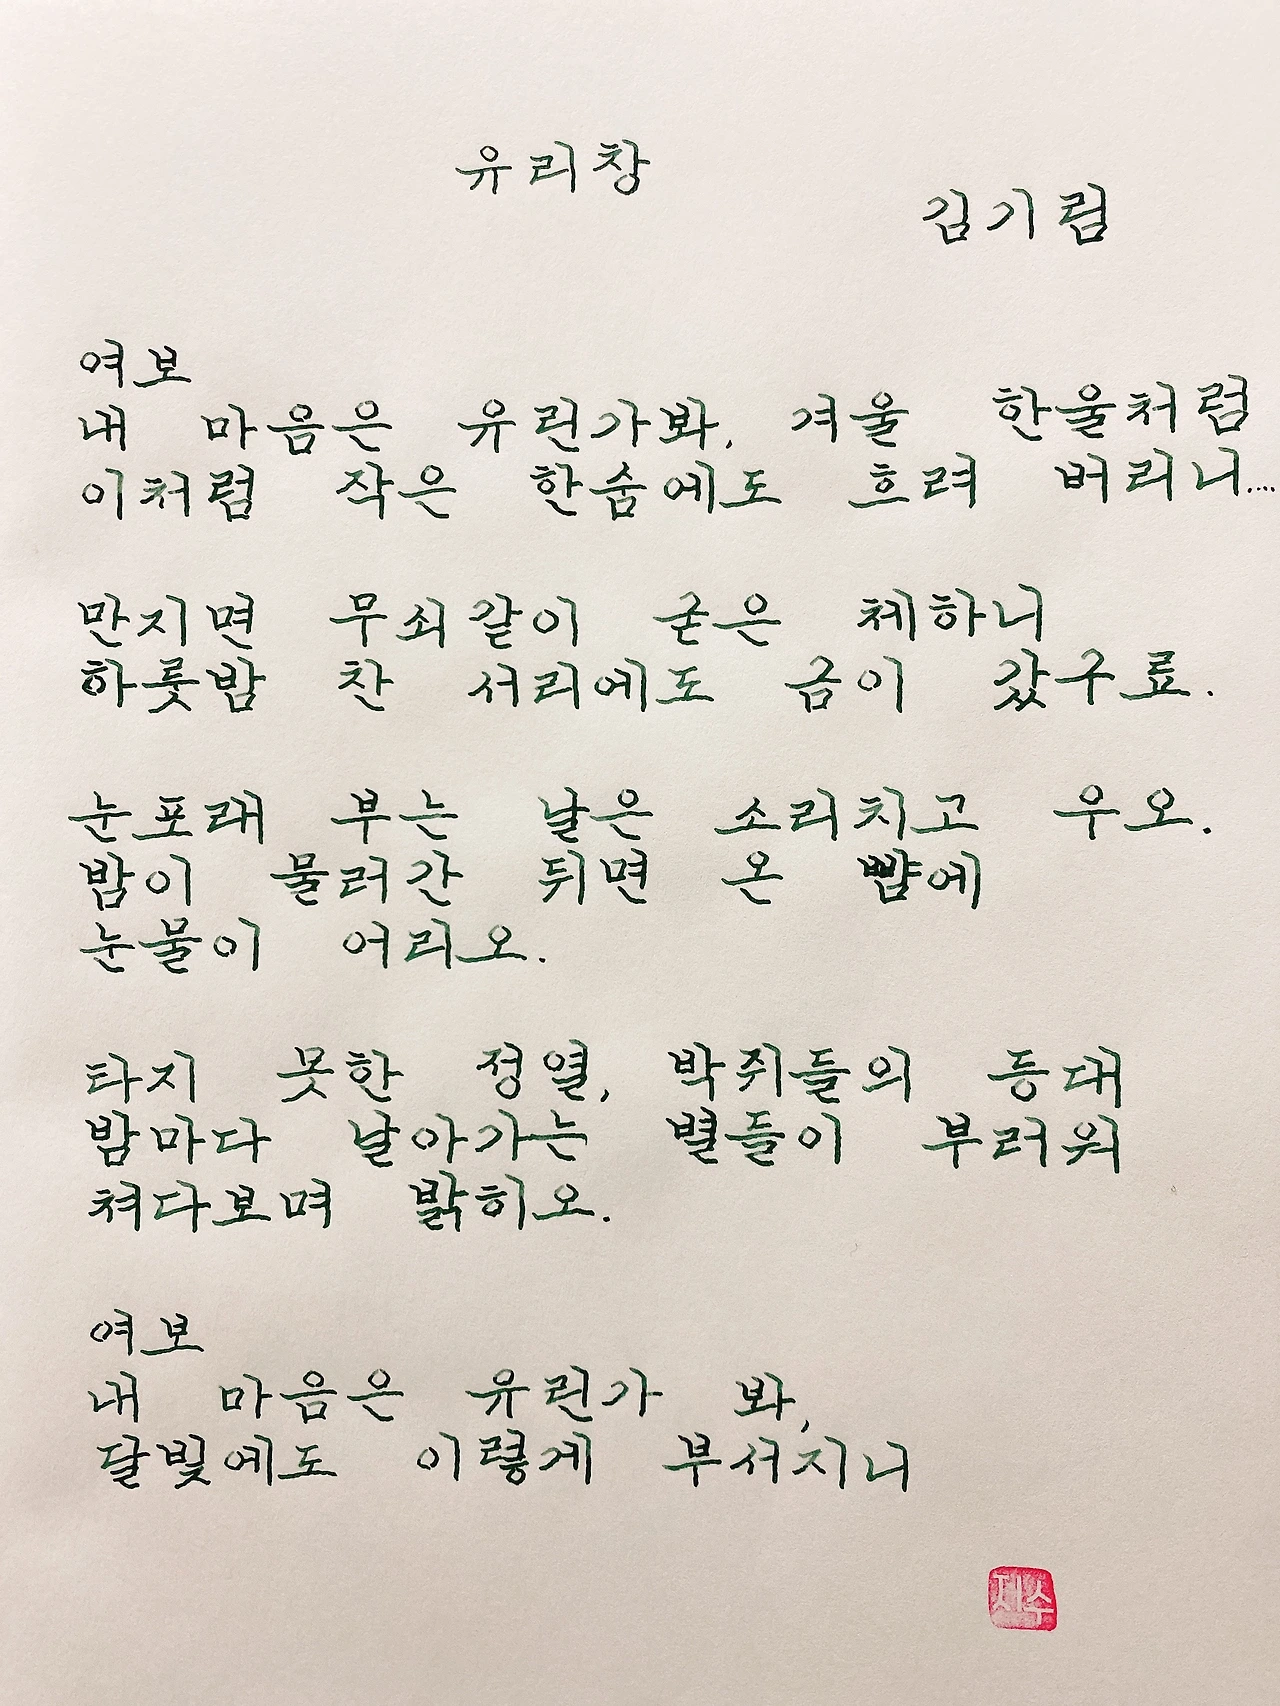 유리창
김기림
여보
내 마음은 유린가봐, 겨울 한울처럼
이처럼 작은 한숨에도 흐려 버리니....
만지면 무쇠같이 굳은 체하니
하룻밤 찬 서리에도 금이 갔구료.
눈포래 부는 날은 소리치고 우오.
밤이 물러간 뒤면 온 뺨에
눈물이 어리오.
타지 못한 정열, 박쥐들의 등대
밤마다 날아가는 별들이 부러워
쳐다보며 밝히오.
여보
내 마음은 유린가 봐,
달빛에도 이렇게 부서지니
제수